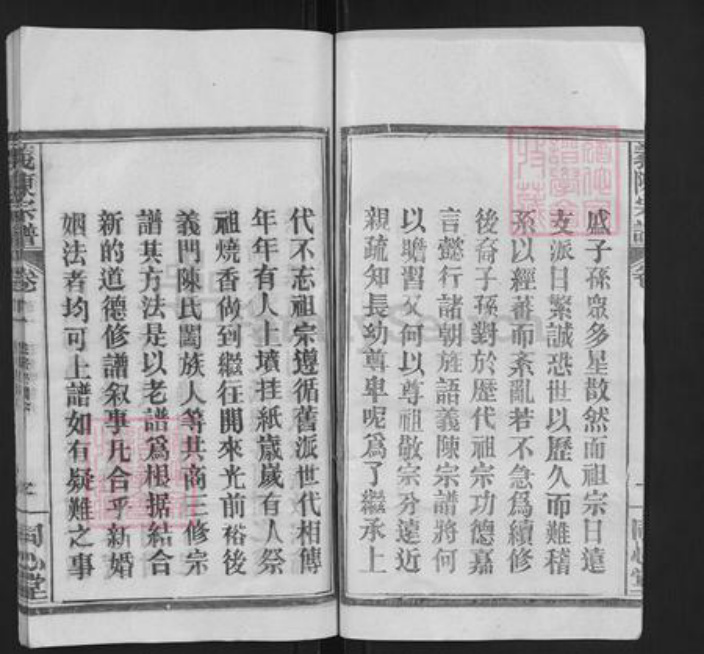 戚子孫眾多星散然而祖宗日遠
支派日繁誠恐世以歷久而難稽
系以經蕃而紊亂若不急為續修
後裔子孫對於歷代祖宗功德嘉
言懿行諸朝旌語義陳宗譜將何
以瞻習又何以尊祖敬宗分遠近
親疏知長幼尊卑呢為了繼承上
代不忘祖宗遵循舊派世代相傳
年年有人上墳挂紙歲歲有人祭
祖燒香做到繼往開來光前裕後
義門陳氏閤族人等共商三修宗
譜其方法是以老譜為根据結合
新的道德修譜叙事凡合乎新婚
姻法者均可上譜如有疑難之事
義陳宗譜
卷
同心堂